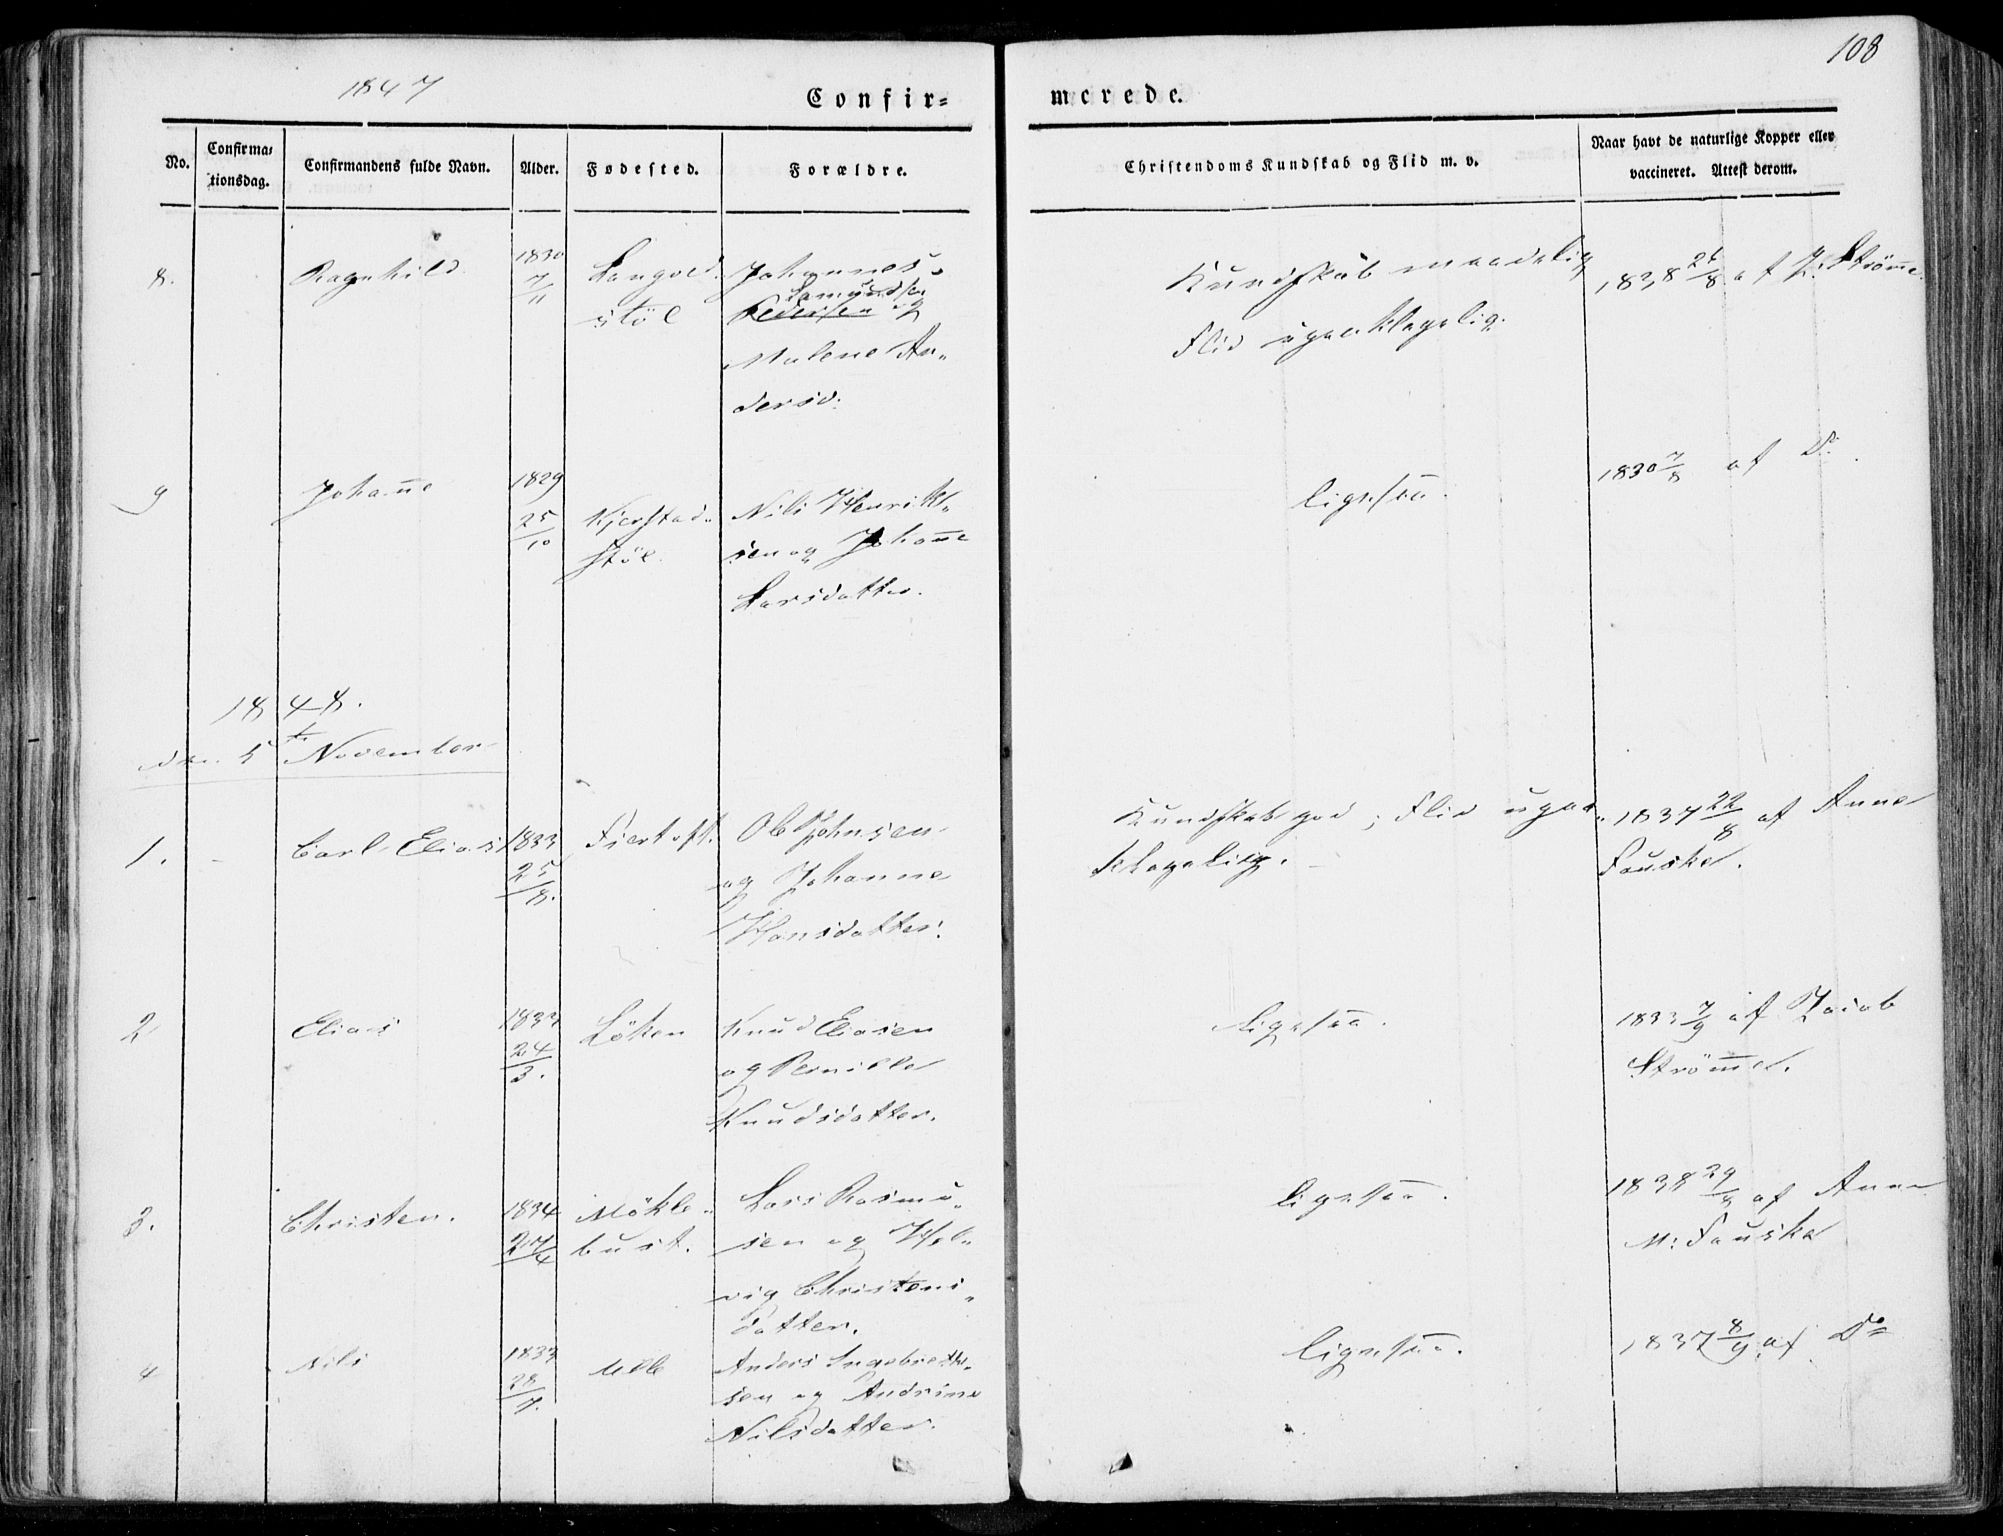 108
1847
Confir=
merede.
No.
Confirma=
tionsdag.
Confirmandens fulde Navn.
Alder.
Fødested.
Forældre.
Christendoms Kundskab og Flid m. v.
Naar havt de naturlige Kopper eller
vaccineret. Attest derom.
8.
Ragnhild
1830
7/11
Langved.
støl
Johannes
Samundsen
Pedersen og
Malene An„
dersd:
Kundskab maadelig
Flid upaaklagelig.
1838 26/8 af J. Strøm̅e.
9
Johan̅e
1829
25/10
Kjerstad„
støl.
Nils Henrik„
sen og Johan̅e
Larsdatter.
ligesaa.
1830 7/8 af Do:
1848.
den 5te November
1.
Carl Elias
1833
25/8.
Fjertoft.
Ole Johnsen
og Johanne
Hansdatter.
Kundskab god; Flid upaa„
klagelig.
1837 22/8 af Anne
Fauske.
2
Elias
1833
24/3.
Løken
Knud Eliasen
og Pernille
Knudsdatter.
ligesaa.
1833 7/9 af Jacob
Strøm̅e.
3.
Christen.
1834
27/4
Møkle„
bust.
Lars Rasmu„
sen og Hel„
vig Christens„
datter.
ligesaa.
1838 29/8 af Anne
M: Fauske
4
Nils
1833
28/7.
Ulle
Anders Ingebrekt„
sen og Andrine
Nilsdatter.
ligesaa.
1837 8/9 af Do